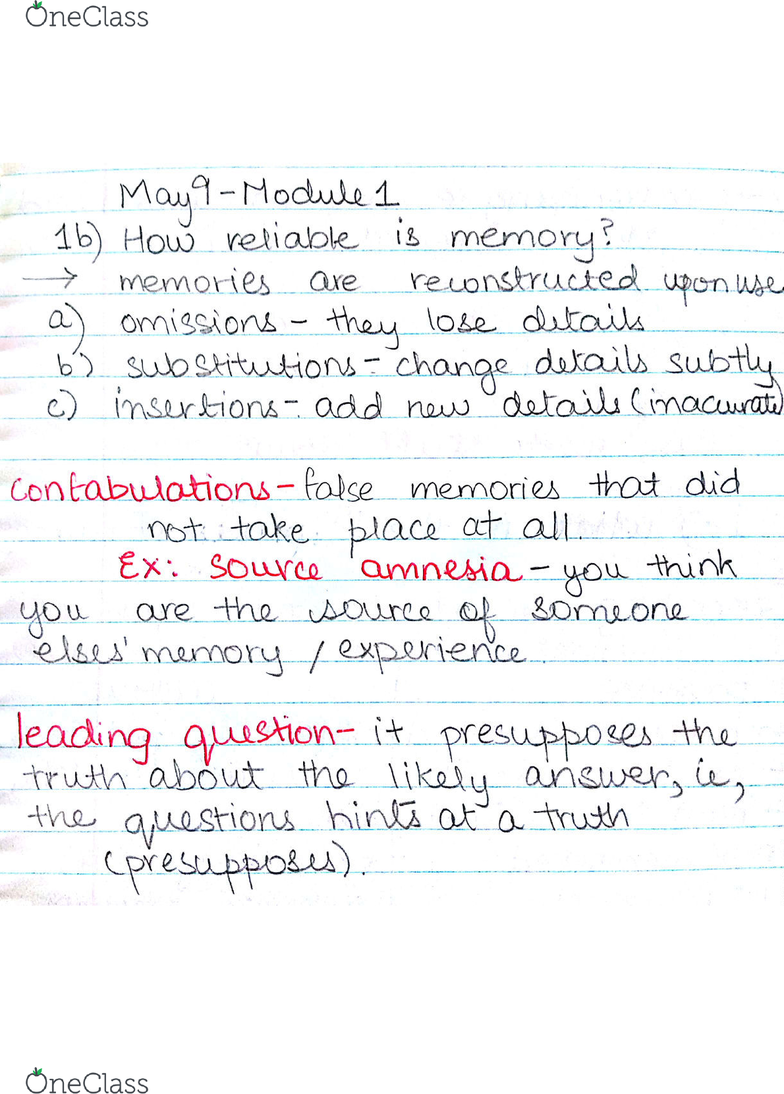 OneClass
May 9 - Module 1
1b) How reliable is memory?
→ memories are reconstructed upon use
a) omissions - they lose details
b) substitutions - change details subtly
c) insertions - add new details (inacurrate)
confabulations - false memories that did
not take place at all.
Ex: source amnesia - you think
you are the source of someone
elses' memory / experience.
leading question - it presupposes the
truth about the likely answer, ie,
the questions hints at a truth
(presupposes).
OneClass